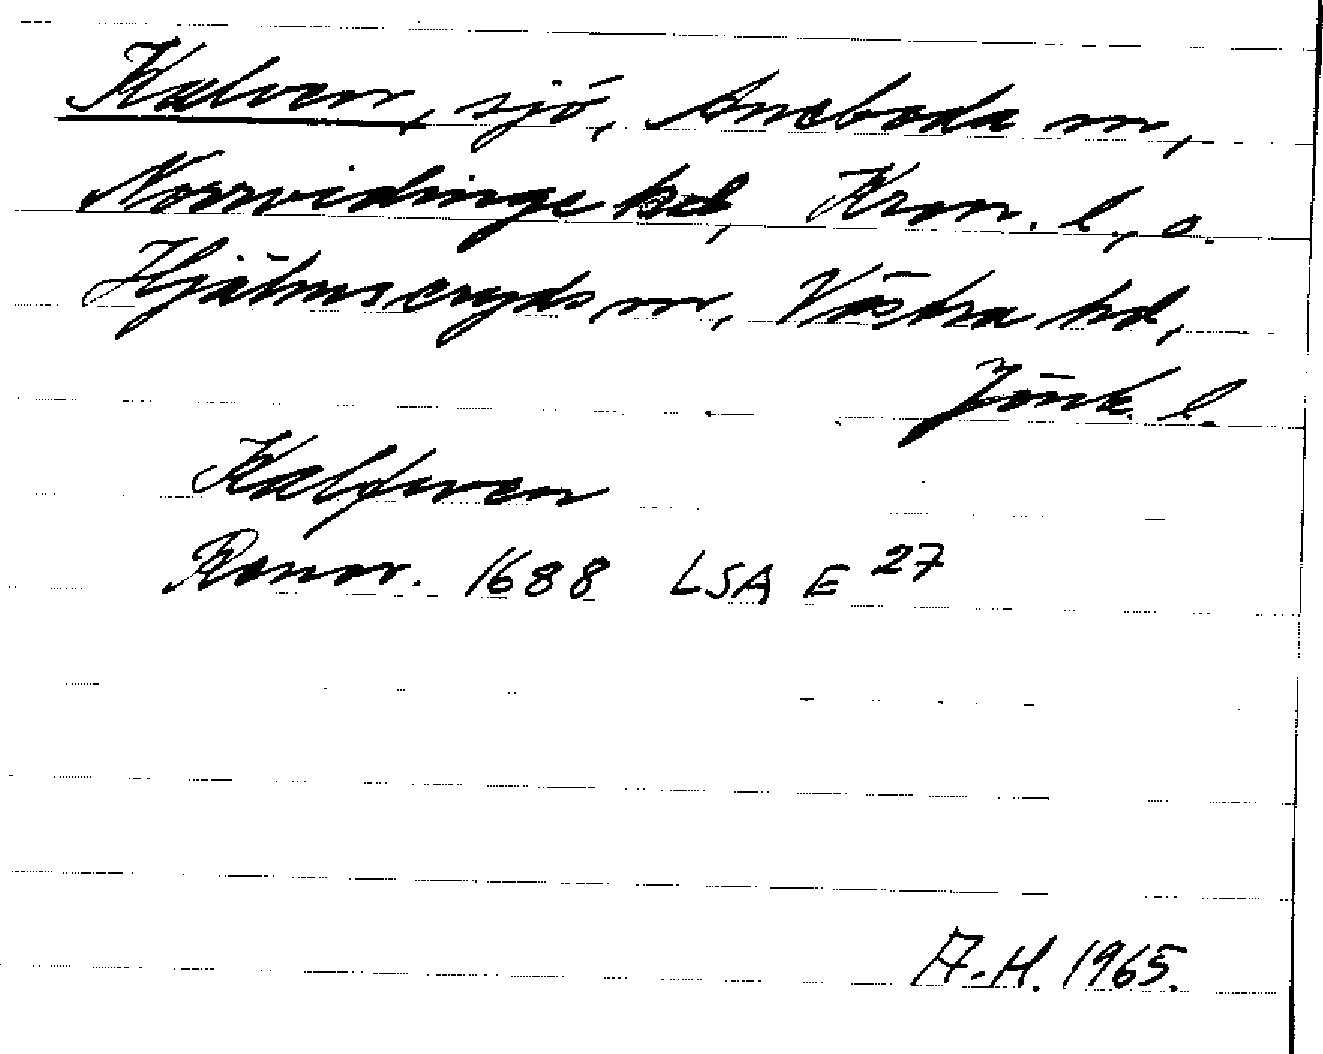 Kalven, sjö, Aneboda sn,
Norrvidinge hd, Kron. l., o.
Hjälmseryds sn, Västra hd,
Jönk. l.
Kalfwen
Rannr. 1688 LSA E 27
A.H. 1965.